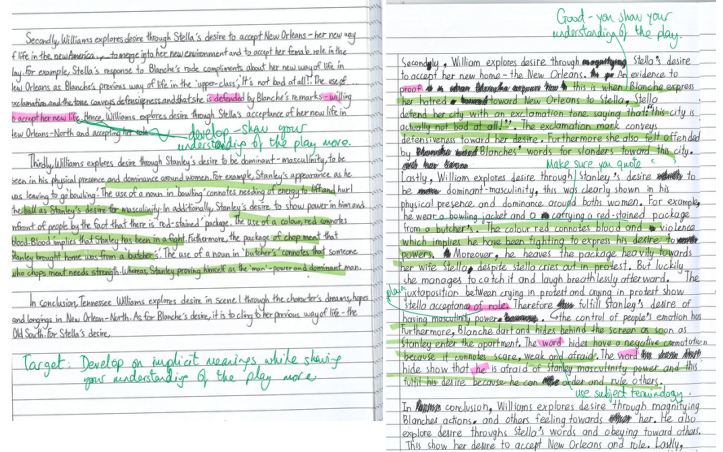 Secondly, Williams explores desire through Stella's desire to accept New Orleans - her new way
of life in the new America, to merge into her new environment and to accept her female role in the
play. For example, Stella's response to Blanche's rude compliments about her new way of life in
New Orleans as Blanche's previous way of life in the 'upper-class', 'It's not bad at all!'. The use of
exclamation and the tone conveys defensiveness and that she is defended by Blanche's remarks - willing
to accept her new life. Hence, Williams explores desire through Stella's acceptance of her new life in
New Orleans-North and accepting her role
develop - show your
understanding of the play more.
Thirdly, Williams explores desire through Stanley's desire to be dominant - masculinity, to be
seen in his physical presence and dominance around women. For example, Stanley's appearance as he
was leaving to go bowling. The use of a noun in 'bowling' connotes needing of energy to lift and hurl
the ball as Stanley's desire for masculinity. In additionally, Stanley's desire to show power in him and
infront of people by the fact that there is 'red-stained' package'. The use of a colour, red connotes
blood-Blood implies that Stanley has been in a fight. Futhermore, the package of chop meat that
Stanley brought home was from a 'butcher's'. The use of a noun in 'butcher's' connotes that someone
who chops meat needs strength. Whereas, Stanley proving himself as the 'man'-power and dominant man.
In conclusion, Tennessee Williams explores desire in scene 1 through the character's dreams, hopes
and longings in New Orlean-North. As for Blanche's desire, it is to cling to her previous way of life - the
Old South. for Stella's desire.
Target: Develop on implicit meanings while showing
your understanding of the play more
Good - you show your
understanding of the play.
Secondly, William explores desire through Stella's desire
to accept her new home - the New Orleans. An evidence to
proof this is when Blanche express
her hatred toward New Orleans to Stella, Stella
defend her city with an exclamation tone saying that "this city is
actually not bad at all!". The exclamation mark conveys
defensiveness toward her desire. Furthermore she also felt offended
by Blanche's words for slanders toward the city.
Make sure you quote
Lastly, William explores desire through Stanley's desire to
be dominant-masculinity, this was clearly shown in his
physical presence and dominance around both women. For example,
he wear a bowling jacket and carrying a red-stained package
from a butcher's. The colour red connotes blood and violence
which implies he have been fighting to express his desire to
powers. Moreover, he heaves the package heavily towards
her wife Stella, despite stella cries out in protest. But luckily
she manages to catch it and laugh breathlessly afterward. The
juxtaposition between crying in protest and crying in protest show
stella acceptance of role. Therefore fulfill Stanley's desire of
having masculinity power. The control of people's emotion has
Furthermore, Blanche dart and hides behind the screen as soon as
Stanley enter the apartment. The word hides have a negative connotation
because it connotes scare, weak and afraid. The word
hide show that he is afraid of Stanley masculinity power and this
fulfil his desire because he can order and rule others.
use subject terminology.
In conclusion, Williams explores desire through magnifying
Blanches actions and others feeling towards her. He also
explore desire throughs Stella's words and obeying toward others.
This show her desire to accept New Orleans and role. Lastly,